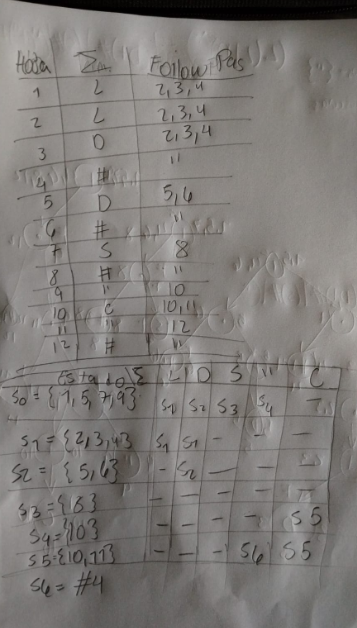 Hoja Σ Follow Pos
1 L 2,3,4
2 L 2,3,4
3 D 2,3,4
4 # "
5 D 5,6
6 # "
7 S 8
8 # "
9 " 10
10 C 10,11
11 " 12
12 # "
Estado\Σ L D S " C
S0 = {1,5,7,9} S1 S2 S3 S4 -
S1 = {2,3,4} S1 S1 - - -
S2 = {5,6} - S2 - - -
S3 = {8} - - - - -
S4 = {10} - - - - S5
S5 = {10,11} - - - S6 S5
S6 = #4